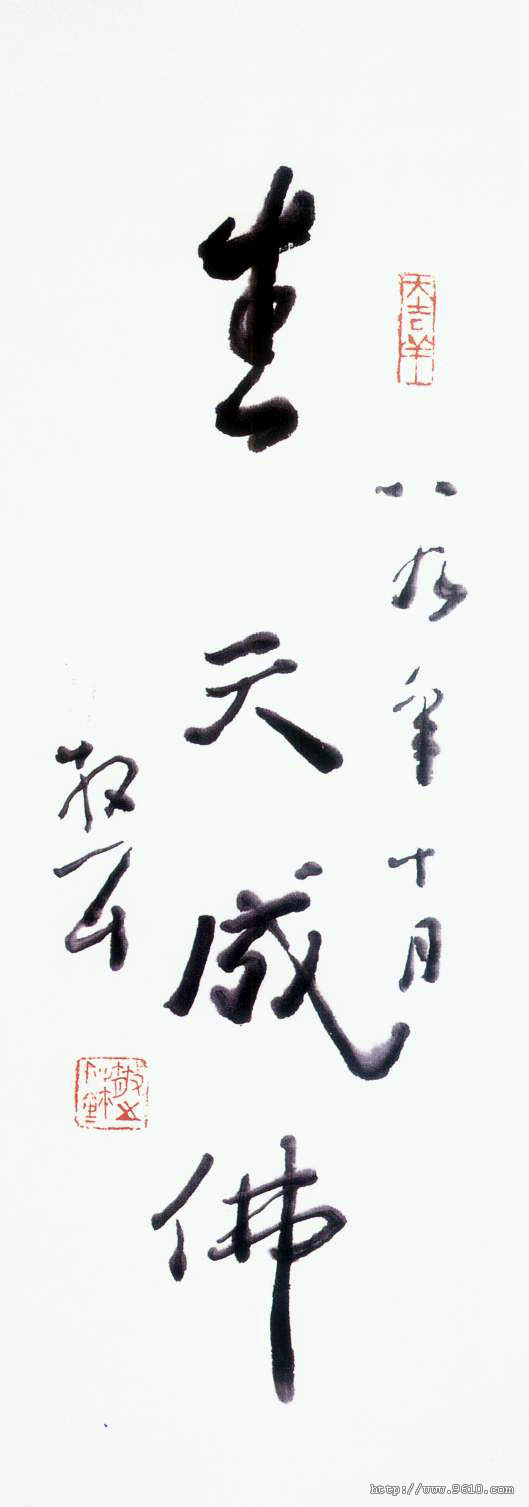 八九年十月
生天成佛
散之
http://www.9610.com